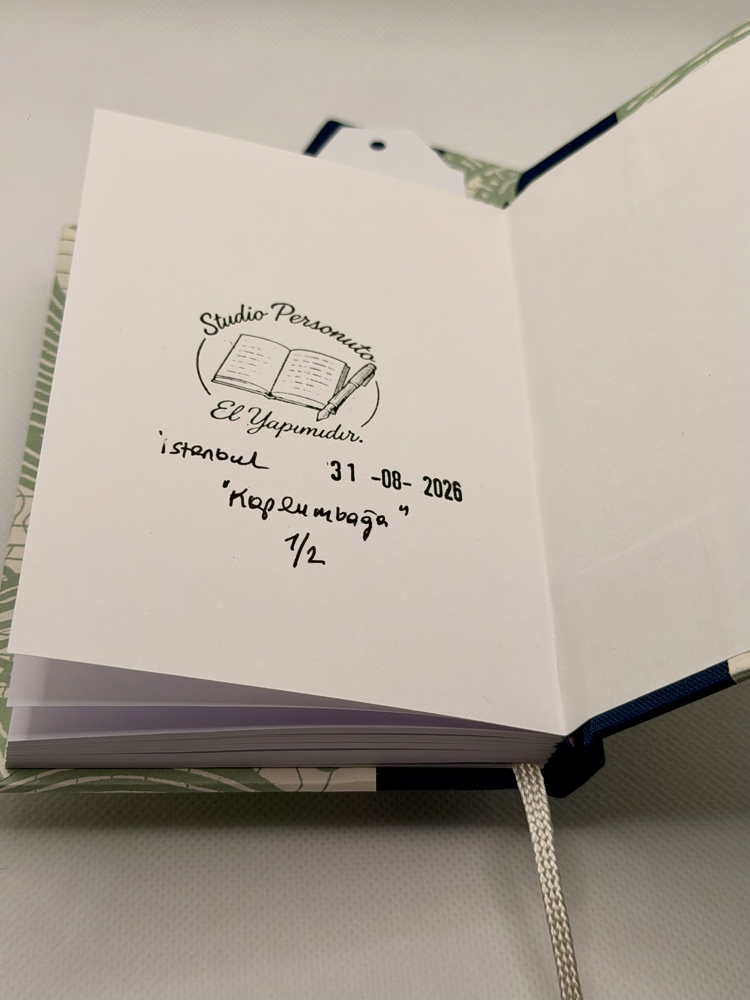 Studio Personuto
El Yapımıdır.
istanbul 31 -08- 2026
"Kaplumbağa"
1/2